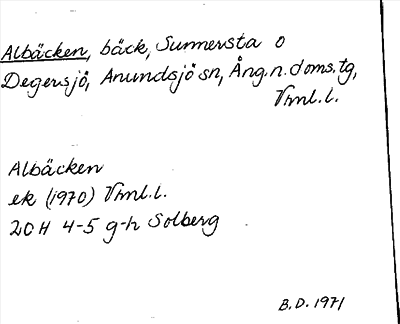 Albäcken, bäck, Sunnersta o
Degersjö, Anundsjö sn, Ång.n.doms.tg,
Vrnl.l.
Albäcken
ek (1970) Vrnl.l.
20H 4-5 g-h Solberg
B.D. 1971